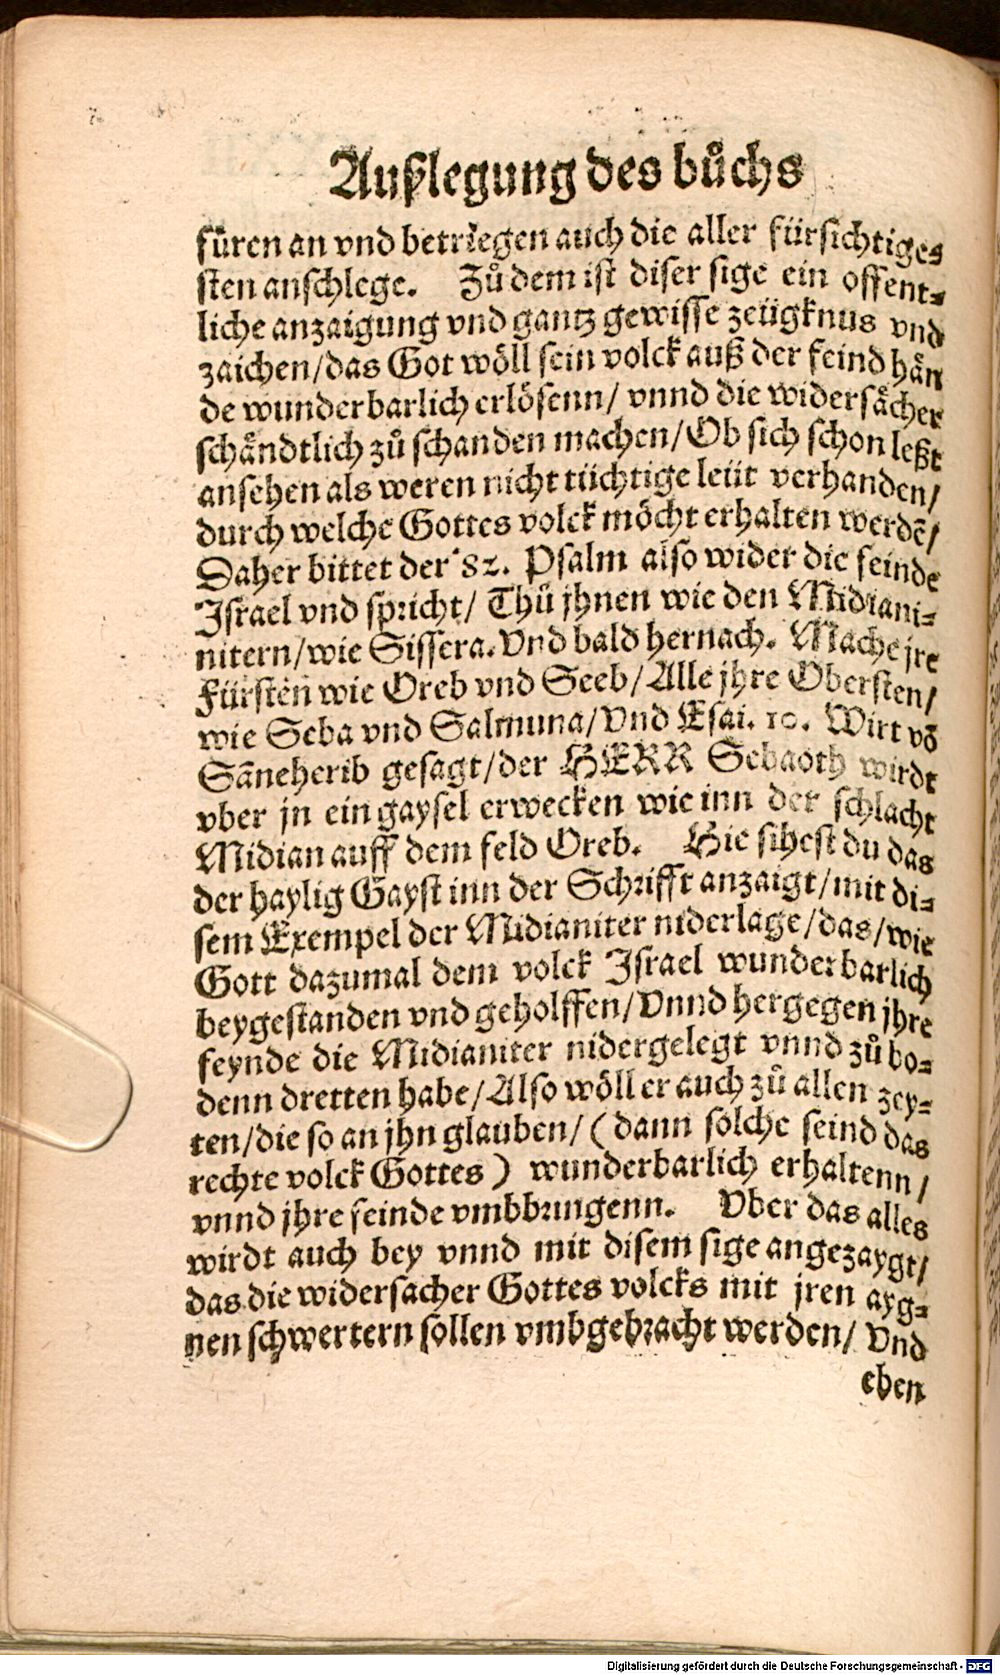 Außlegung des bůchs
füren an vnd betriegen auch die aller fürsichtiges⸗
sten anschlege. Zů dem ist diser sige ein offent⸗
liche anzaigung vnd gantz gewisse zeügknus vnd
zaichen/das Got wöll sein volck auß der feind hån
de wunderbarlich erlösenn/ vnnd die widersåcher
schåndtlich zů schanden machen/Ob sich schon leßt
ansehen als weren nicht tüchtige leüt verhanden/
durch welche Gottes volck möcht erhalten werdē/
Daher bittet der 82. Psalm also wider die feinde
Israel vnd spricht/ Thů jhnen wie den Midiani⸗
nitern/wie Sissera. Vnd bald hernach. Mache jre
Fürsten wie Oreb vnd Seeb/Alle jhre Obersten/
wie Seba vnd Salmuna/Vnd Esai. 10. Wirt vō
Sāneherib gesagt/der HERR Sebaoth wirdt
vber jn ein gaysel erwecken wie inn der schlacht
Midian auff dem feld Oreb. Hie sihest du das
der haylig Gayst inn der Schrifft anzaigt/mit di⸗
sem Exempel der Midianiter niderlage/das/wie
Gott dazumal dem volck Israel wunderbarlich
beygestanden vnd geholffen/Vnnd hergegen jhre
feynde die Midianiter nidergelegt vnnd zů bo⸗
denn dretten habe/Also wöll er auch zů allen zey⸗
ten/die so an jhn glauben/(dann solche seind das
rechte volck Gottes) wunderbarlich erhaltenn/
vnnd jhre feinde vmbbringenn. Vber das alles
wirdt auch bey vnnd mit disem sige angezaygt/
das die widersacher Gottes volcks mit jren ayg⸗
nen schwertern sollen vmbgebracht werden/ Vnd
eben
Digitalisierung gefördert durch die Deutsche Forschungsgemeinschaft - DFG